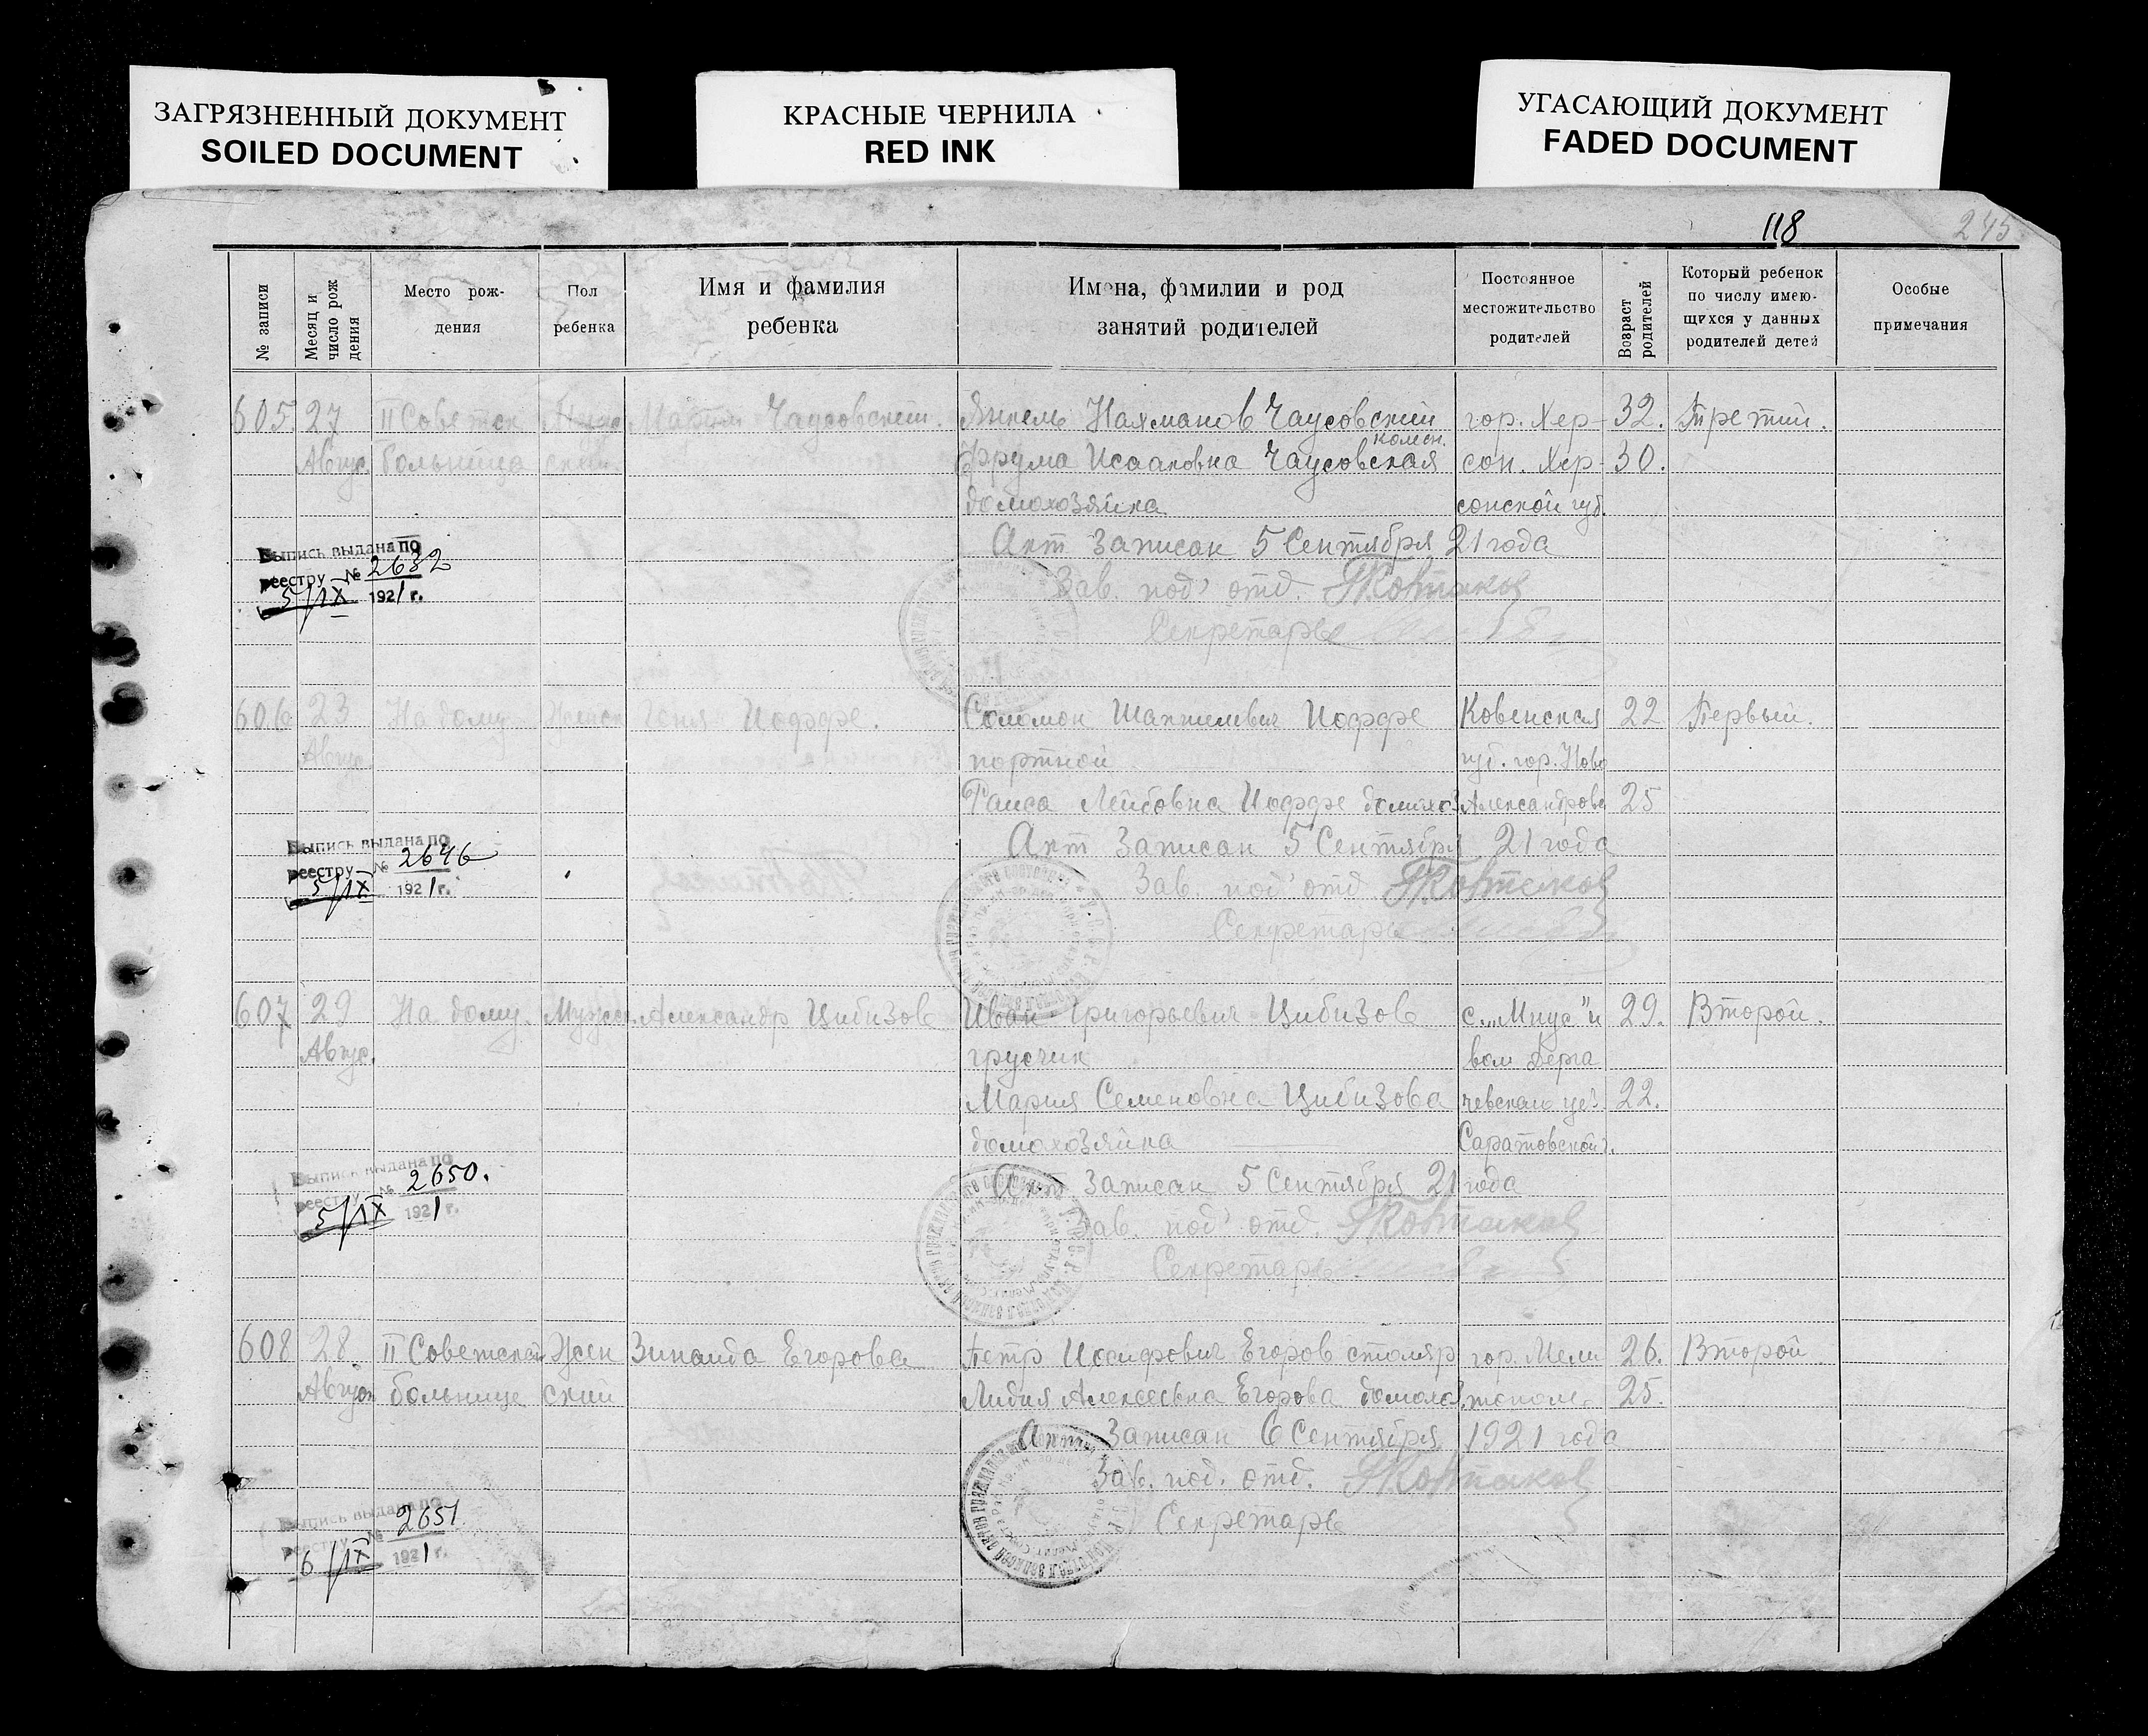 ЗАГРЯЗНЕННЫЙ ДОКУМЕНТ
SOILED DOCUMENT
КРАСНЫЕ ЧЕРНИЛА
RED INK
УГАСАЮЩИЙ ДОКУМЕНТ
FADED DOCUMENT
118
245
№ записи
Месяц и число рож дения
Место рож-
дения
Пол
ребенка
Имя и фамилия
ребенка
Имена, фамилии и род
занятий родителей
Постоянное
местожительство
родителей
Возраст родителей
Который ребенок
по числу имею-
щихся у данных
родителей детей
Особые
примечания
605 27 II Советск Чаусовский. Янкель Нахманов Чаусовский гор. Хер- 32. Третий.
Август больница Фрума Исааковна Чаусовская сон. Хер- 30.
домохозяйка сонской губ.
Акт Записан 5 Сентября 21 года
Выпись выдана по
реестру № 2632
5/IX 1921 г.
Зав. под' отд.
Секретарь
606 23 На дому Женск Иоффе. Соломон Иоффе Ковенская 22 Первый.
Август портной губ. гор. Ново
Раиса Лейбовна Иоффе домохоз Александровс 25
Акт Записан 5 Сентября 21 года
Выпись выдана по
реестру № 2646
5/IX 1921 г.
Зав. под' отд
Секретарь
607 29 На дому. Мужск. Александр Цибизов Иван Григорьевич Цибизов 29. Второй.
Авгус. грузчик вол Дерга
Мария Семеновна Цибизова чевского уез 22.
домохозяйка Саратовской г.
Акт Записан 5 Сентября 21 года
Выпись выдана по
реестру № 2650.
5/IX 1921 г.
Зав. под' отд.
Секретарь
608 28 II Советская Жен Зинаида Егорова Петр Иосифович Егоров столяр гор. Мели 26. Второй
Август больница ский Лидия Алексеевна Егорова домохоз. тополь. 25.
Акт Записан 6 Сентября 1921 года
Зав. под. отд.
Выпись выдана по
реестру № 2651.
6/IX 1921 г.
Секретарь